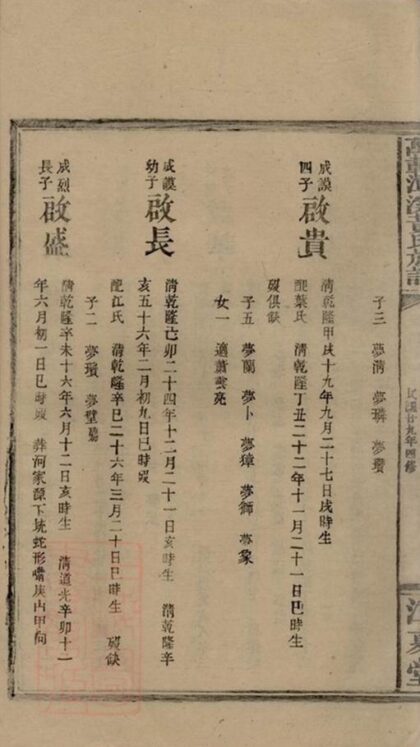 民國廿九年四修
子三 夢清 夢璘 夢瓚
成謨四子 啟貴
清乾隆甲戌十九年九月二十七日戌時生
配葉氏 清乾隆丁丑二十二年十一月二十一日巳時生
歿俱缺
子五 夢蘭 夢卜 夢璋 夢獅 夢象
女一 適蕭雲亮
成謨幼子 啟長
清乾隆己卯二十四年十二月二十一日亥時生 清乾隆辛
亥五十六年二月初九日巳時歿
配江氏 清乾隆辛巳二十六年三月二十日巳時生 歿缺
子二 夢瓚 夢璧
成烈長子 啟盛
清乾隆辛未十六年六月十二日亥時生 清道光辛卯十一
年六月初一日巳時歿 葬河家源下坑蛇形嘴庚山甲向
江夏堂